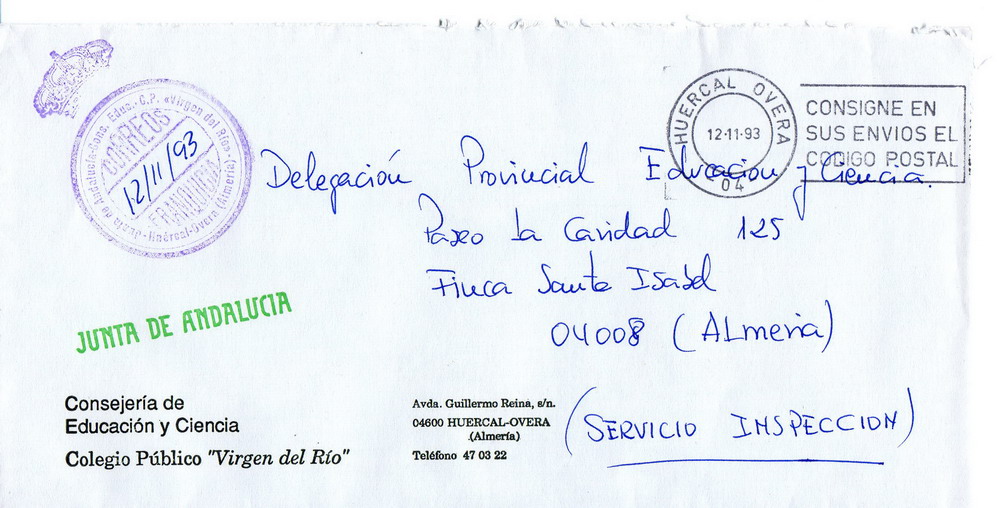 Junta de Andalucia Cons. Educ. C.P. «Virgen del Río»
CORREOS
12/11/93
FRANQUICIA
Huércal-Overa (Almería)
HUERCAL OVERA
12·11·93
04
CONSIGNE EN
SUS ENVIOS EL
CODIGO POSTAL
Delegación Provincial Educación y Ciencia.
Paseo La Caridad 125
Finca Santa Isabel
04008 (ALmeria)
(SERVICIO INSPECCION)
JUNTA DE ANDALUCIA
Consejería de
Educación y Ciencia
Colegio Público "Virgen del Río"
Avda. Guillermo Reina, s/n.
04600 HUERCAL-OVERA
(Almería)
Teléfono 47 03 22